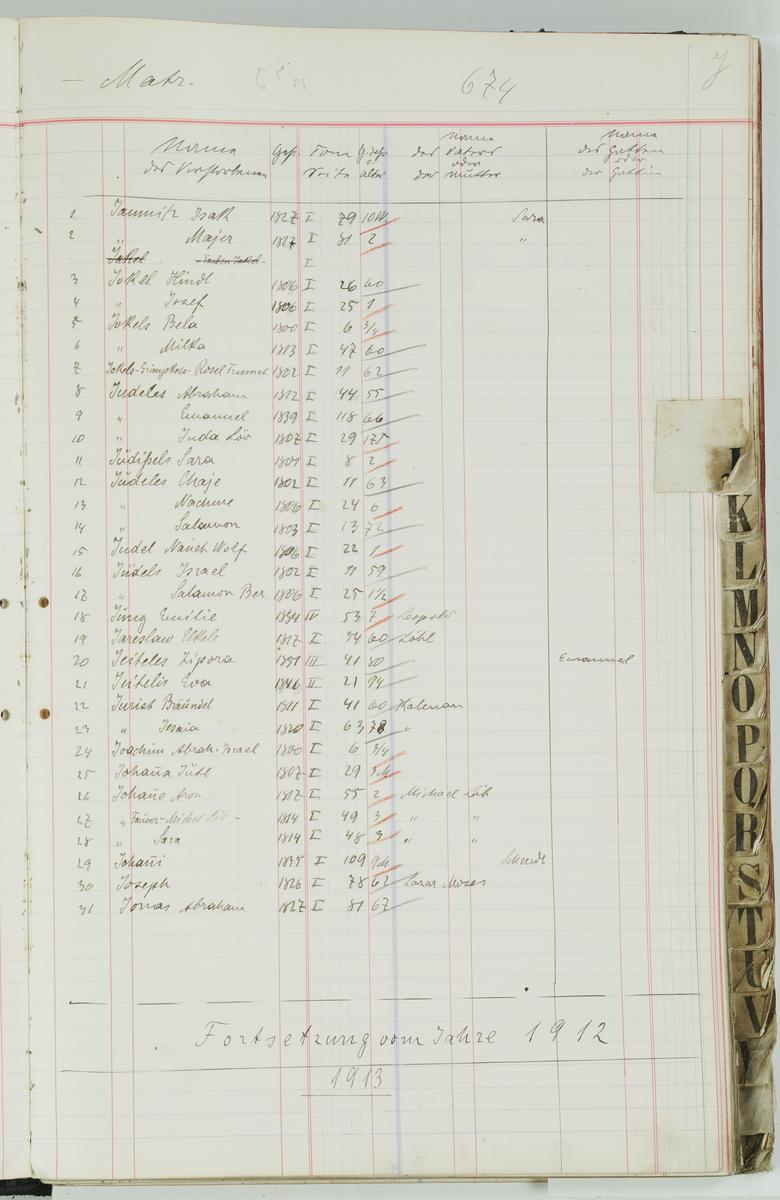 — Matr. 674 J
Name Gest. Tom G. Jahr Name Name
des Verstorbenen Seite o. Alter des Vaters oder der Mutter des Gatten oder der Gattin
1 Jamnitz Isak 1827 I 79 10M Sara
2 " Majer 1827 I 81 2 "
Jakel I
3 Jokel Hindl 1806 I 26 60
4 " Josef 1806 I 25 1
5 Jokels Bela 1800 I 6 3/4
6 " Milka 1813 I 47 60
7 Jokels- Rosel 1802 I 11 62
8 Judeles Abraham 1812 I 44 55
9 " Emanuel 1839 I 118 66
10 " Juda Löv 1807 I 29 175
11 Sara 1801 I 8 2
12 Jüdeles Chaje 1802 I 11 63
13 " Nachme 1806 I 24 6
14 " Salamon 1803 I 13 72
15 Judel Wolf 1806 I 22 1
16 Jüdels Israel 1802 I 11 59
17 " Salamon Ber 1806 I 25 1½
18 Jung Emilie 1854 IV 53 7 Leopold
19 Jareslaw 1817 I 54 60 Löbl
20 Jeiteles Zipora 1851 III 41 80 Emanuel
21 Jeitelis Eva 1846 II 21 94
22 Jurist Bräundel 1811 I 41 60 Kalman
23 " Jesaia 1820 I 63 78 "
24 Joachim Abrah. Israel 1800 I 6 3/4
25 Johaña Jütl 1807 I 29 3M
26 Johañe Aron 1817 I 55 2 Michael Löb
27 " Michel Löv - 1814 I 49 3 " "
28 " Sara 1814 I 48 3 " "
29 Johañi 1835 I 109 9M
30 Joseph 1826 I 78 62 Lazar Moses
31 Jonas Abraham 1827 I 81 67
Fortsetzung vom Jahre 1912
1913
J
K
L
M
N
O
P
Q
R
S
T
U
V